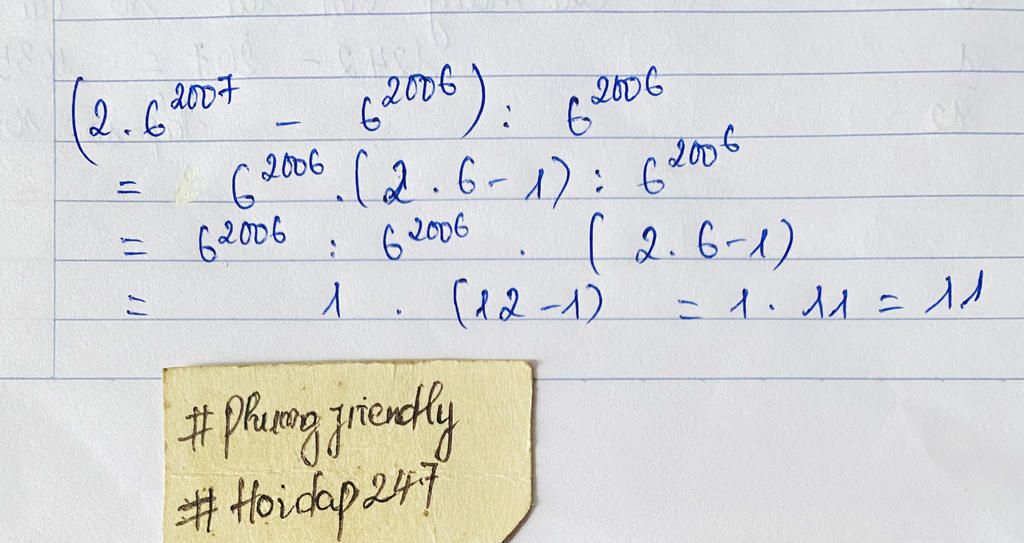 (2 . 6^2007 - 6^2006) : 6^2006
= 6^2006 . (2 . 6 - 1) : 6^2006
= 6^2006 : 6^2006 . (2 . 6 - 1)
= 1 . (12 - 1) = 1 . 11 = 11
# Phuong friendly
# Hoidap247